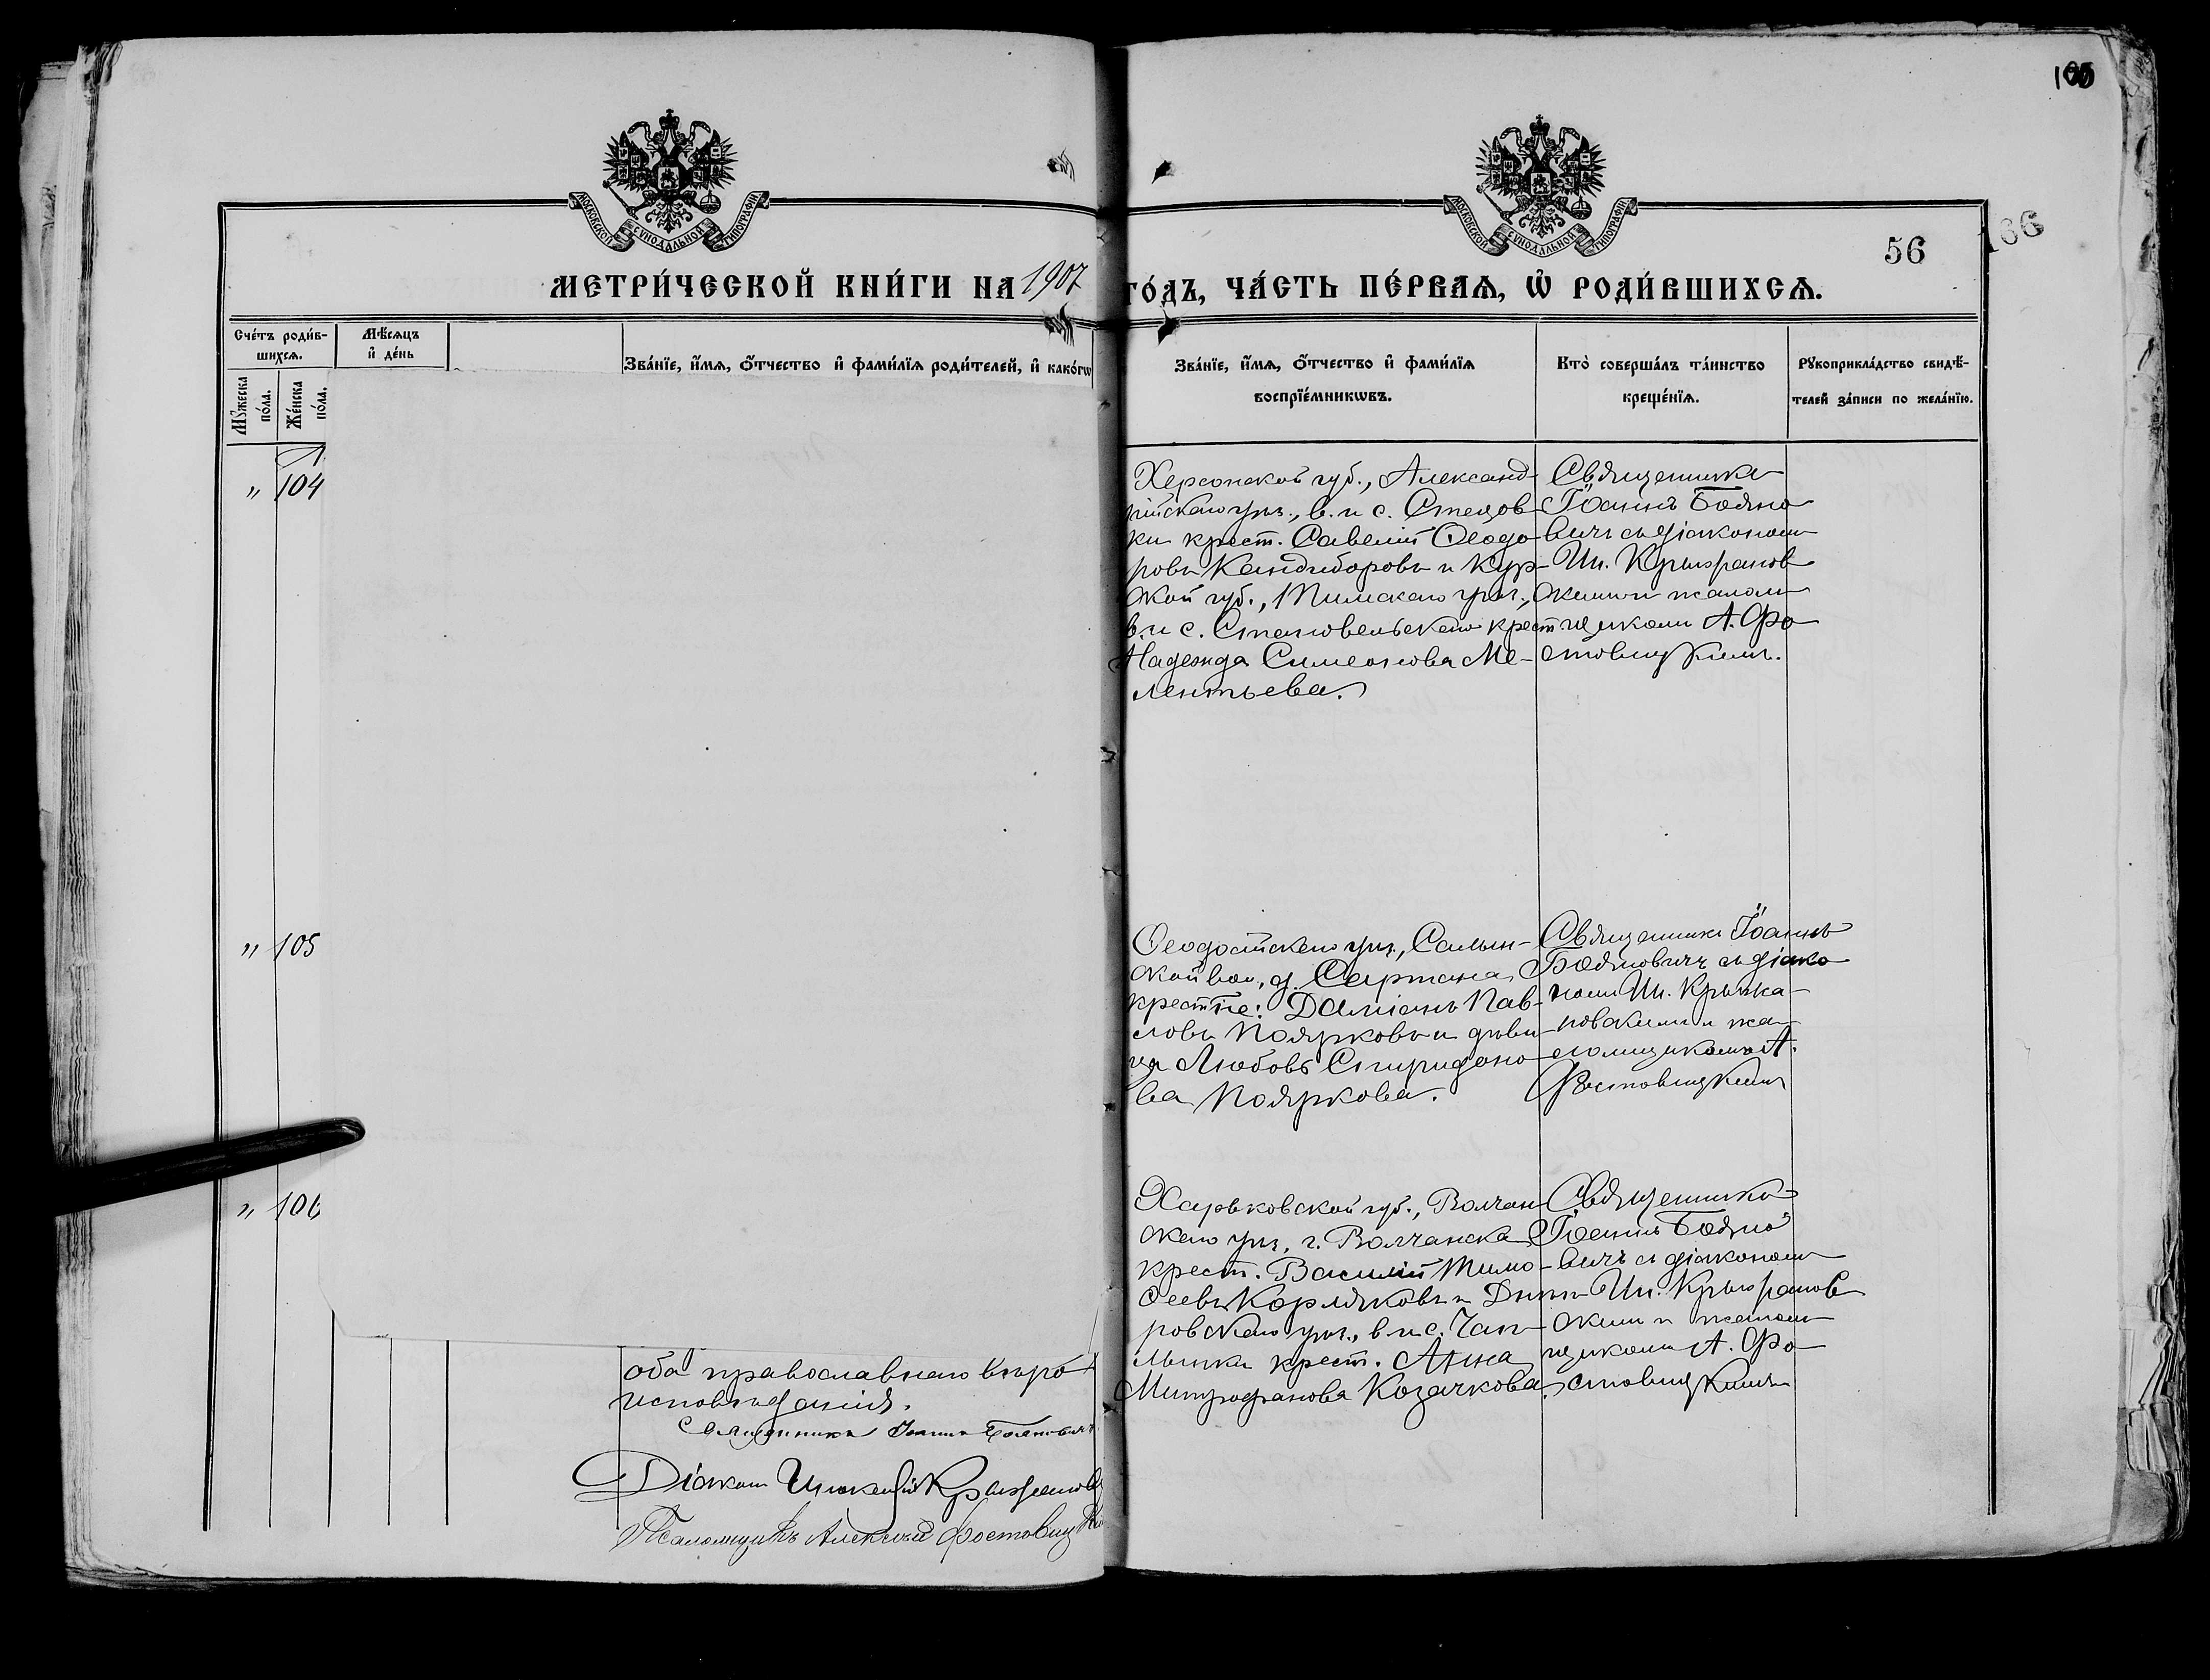 100
МОСКОВСКОЙ СУНОДАЛЬНОЙ ТИПОГРАФІИ
МОСКОВСКОЙ СУНОДАЛЬНОЙ ТИПОГРАФІИ
56
166
МЕТРИ́ЧЕСКОЙ КНИ́ГИ НА 1907 ГО́ДЪ, ЧА́СТЬ ПЕ́РВАѦ, Ѡ҆ РОДИ́ВШИХСѦ.
Сче́тъ роди́в-
шихсѧ.
Мꙋ́жеска по́ла.
Же́нска по́ла.
Мѣ́сѧцъ
и҆ де́нь
Зва́нїе, и҆́мѧ, ѻ҆́тчество и҆ фами́лїѧ роди́телей, и҆ како́гѡ
Зва́нїе, и҆́мѧ, ѻ҆́тчество и҆ фами́лїѧ
воспрїе́мникѡвъ.
Кто̀ соверша́лъ та́инство
креще́нїѧ.
Рꙋкоприкла́дство свидѣ́-
телей за́писи по жела́нїю.
" 104
Херсонской губ., Александ-
рійскаго уѣз., в. и с. Стецов-
ки крест. Савелій Ѳеодо-
ровъ Кандиборовъ и Кур-
ской губ., Тимскаго уѣз.,
в. и с. крест.
Надежда Симеонова Ме-
лентьева.
Священникъ
Іоаннъ Бояно
вичъ съ діакономъ
Ин. Крыжанов
скимъ и псалом
щикомъ А. Фо
стовицкимъ.
" 105
Ѳеодосійскаго уѣз., Салын-
ской вол., д. Сартана,
крест-іе: Даміанъ Пав-
ловъ Поярковъ и дѣви-
ца Любовь Спиридоно-
ва Пояркова.
Священникъ Іоаннъ
Бояновичъ съ діако
номъ Ин. Крыжа-
новскимъ и пса-
ломщикомъ А.
Фостовицкимъ
" 106
Харьковской губ., Волчан-
скаго уѣз. г. Волчанска
крест. Василій Тимо-
ѳеевъ Корляковъ и Днѣп-
ровскаго уѣз., в. и с. Чап-
лынки крест. Анна
Митрофанова Козачкова.
Священникъ
Іоаннъ Бояно
вичъ съ діакономъ
Ин. Крыжанов
скимъ и псалом
щикомъ А. Фо-
стовицкимъ
оба православнаго вѣро-
исповѣданія.
Священникъ Іоаннъ Бояновичъ.
Діаконъ Иннокентій Крыжанов
Псаломщикъ Алексѣй Фостовицкі